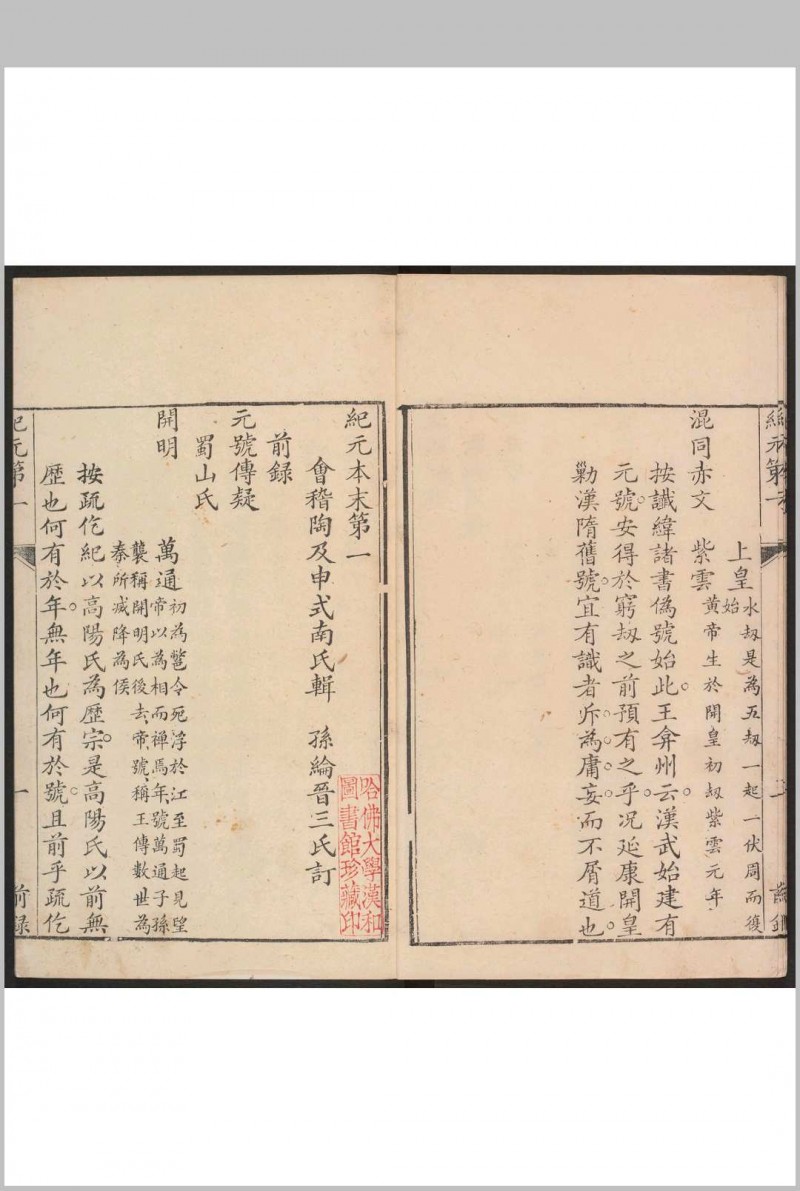 上皇
水刼是為五刼一起一伏周而復
始
混同赤文　紫雲
黃帝生於開皇初刼紫雲元年
按讖緯諸書偽號始此王弇州云漢武始建有
元號安得於窮刼之前預有之乎況延康開皇
勦漢隋舊號宜有識者斥為庸妄而不屑道也
紀元本末第一
會稽陶及申式南氏輯　孫綸晉三氏訂
哈佛大學漢和
圖書館珍藏印
前録
元號傳疑
蜀山氏
開明
萬通
初為鼈令死浮於江至蜀起見望
帝以為相而禪焉年號萬通子孫
襲稱開明氏後去帝號稱王傳數世為
秦所滅降為侯
按疏仡紀以高陽氏為歷宗是高陽氏以前無
歷也何有於年無年也何有於號且前乎疏仡
紀元第一
一
前録